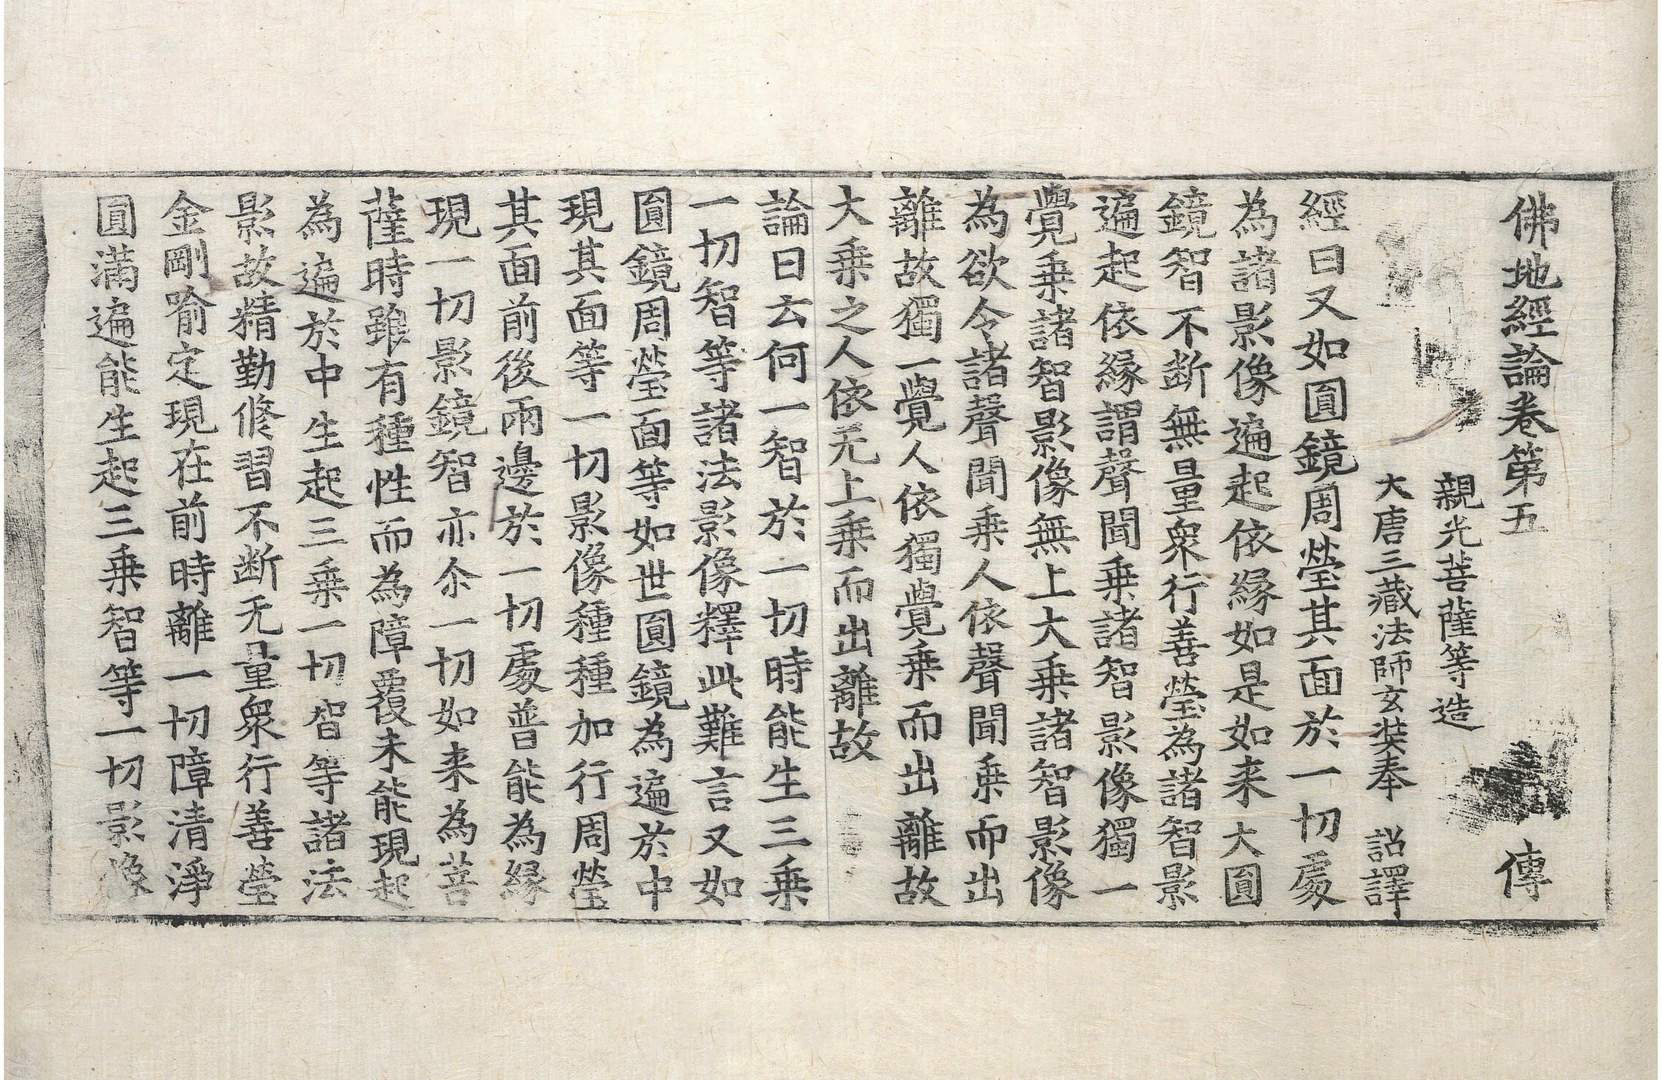 佛地經論卷第五 傳
親光菩薩等造
大唐三藏法師玄奘奉 詔譯
經曰又如圓鏡周瑩其面於一切處
為諸影像遍起依緣如是如来大圓
鏡智不断無量衆行善瑩為諸智影
遍起依緣謂聲聞乗諸智影像獨一
覺乗諸智影像無上大乗諸智影像
為欲令諸聲聞乗人依聲聞乗而出
離故獨一覺人依獨覺乗而出離故
大乗之人依无上乗而出離故
論曰云何一智於一切時能生三乗
一切智等諸法影像釋此難言又如
圓鏡周瑩面等如世圓鏡為遍於中
現其面等一切影像種種加行周瑩
其面前後兩邊於一切處普能為緣
現一切影鏡智亦尒一切如来為菩
薩時雖有種性而為障覆未能現起
為遍於中生起三乗一切智等諸法
影故精勤修習不断无量衆行善瑩
金剛喻定現在前時離一切障清淨
圓滿遍能生起三乗智等一切影像